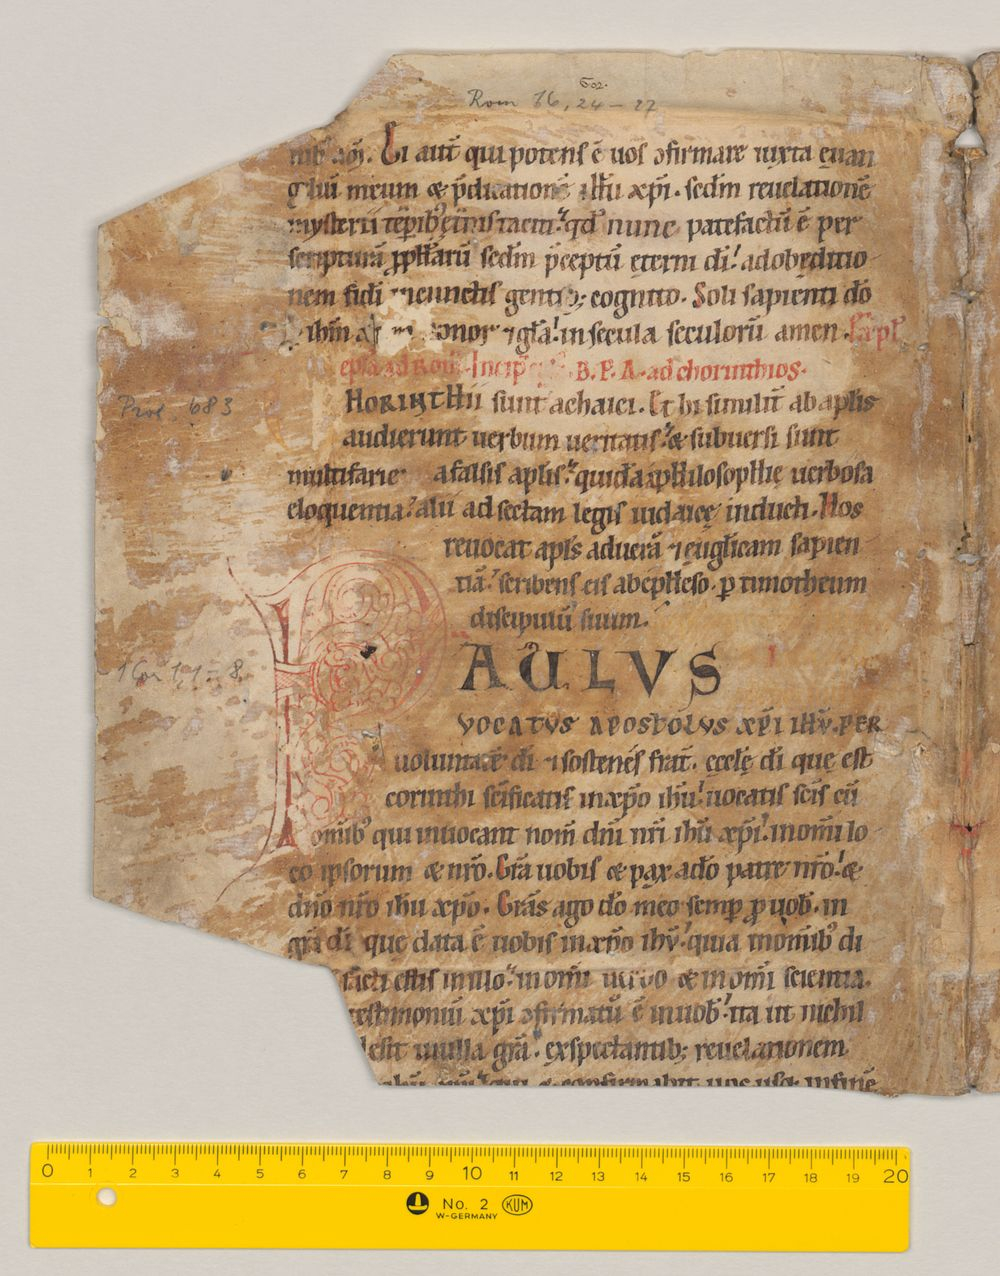 Gor.
Rom 16, 24 – 27
nib' am̄. Ei aut̄ qui potens ē uos ↄfirmare iuxta euan
gliū meum & p̄dicationē ihū xp̄i. sed̄m reuelationē
mysterii tēporib; et̄nis taciti. qd' nunc patefactū ē per
scripturā ꝓph̄arū sed̄m p̄ceptū eterni dī. ad obęditio
nem fidi cunctis gentib; cognito. Soli sapienti dō
ihm̄ honor ⁊ gl̄a. in secula seculorū amen. Expl̄
epl̄a ad Rom̄. Incip̄ B. P. A. ad chorinthios.
HORINTHii sunt achaici. Et hi similit̄ ab apl̄is
audierunt uerbum ueritatis. & subuersi sunt
multifarie a falsis apl̄is. quidā a philosophię uerbosa
eloquentia. alii ad sectam legis iudaicę inducti. Hos
reuocat apl̄s ad uerā ⁊ euḡlicam sapien
tiā. scribens eis ab epheso. ꝑ timotheum
discipulū suum.
Prol. 683
1 Cor 1,1–8
PAULVS
VOCATVS APOSTOLVS XP̄I IHV̄. PER
uoluntatē dī. ⁊ sostenēs frat̄. eccl̄ę dī que est
corinthi sc̄ificatis in xp̄o ihū. uocatis sc̄is cū
omib' qui inuocant nom̄ dn̄i nr̄i ihū xp̄i. in om̄i lo
co ipsorum & nr̄o. Gr̄a uobis & pax a dō patre nr̄o. &
dn̄o nr̄o ihū xp̄o. Gr̄as ago dō meo semꝑ ꝓ uob'. in
gr̄a dī que data ē uobis in xp̄o ihv̄. quia in om̄ib' di
facti estis in illo. in om̄i uerbo & in om̄i scientia.
testimoniū xp̄i ↄfirmatū ē in uob'. ita ut nichil
desit in ulla gr̄a. exspectantib; reuelationem
ihū xp̄i. qui & confirmabit uos usq; in finē
0 1 2 3 4 5 6 7 8 9 10 11 12 13 14 15 16 17 18 19 20
No. 2 KUM
W-GERMANY